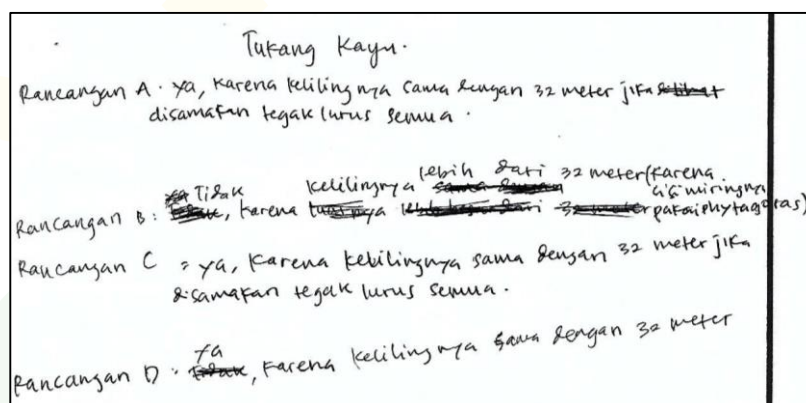 Tukang Kayu.
Rancangan A. ya, karena kelilingnya sama dengan 32 meter jika
disamakan tegak lurus semua.
Tidak kelilingnya lebih dari 32 meter (karena
sisi miringnya
Rancangan B: , karena pakai phytagoras)
Rancangan C = ya, karena kelilingnya sama dengan 32 meter jika
disamakan tegak lurus semua.
ya
Rancangan D. , karena kelilingnya sama dengan 32 meter